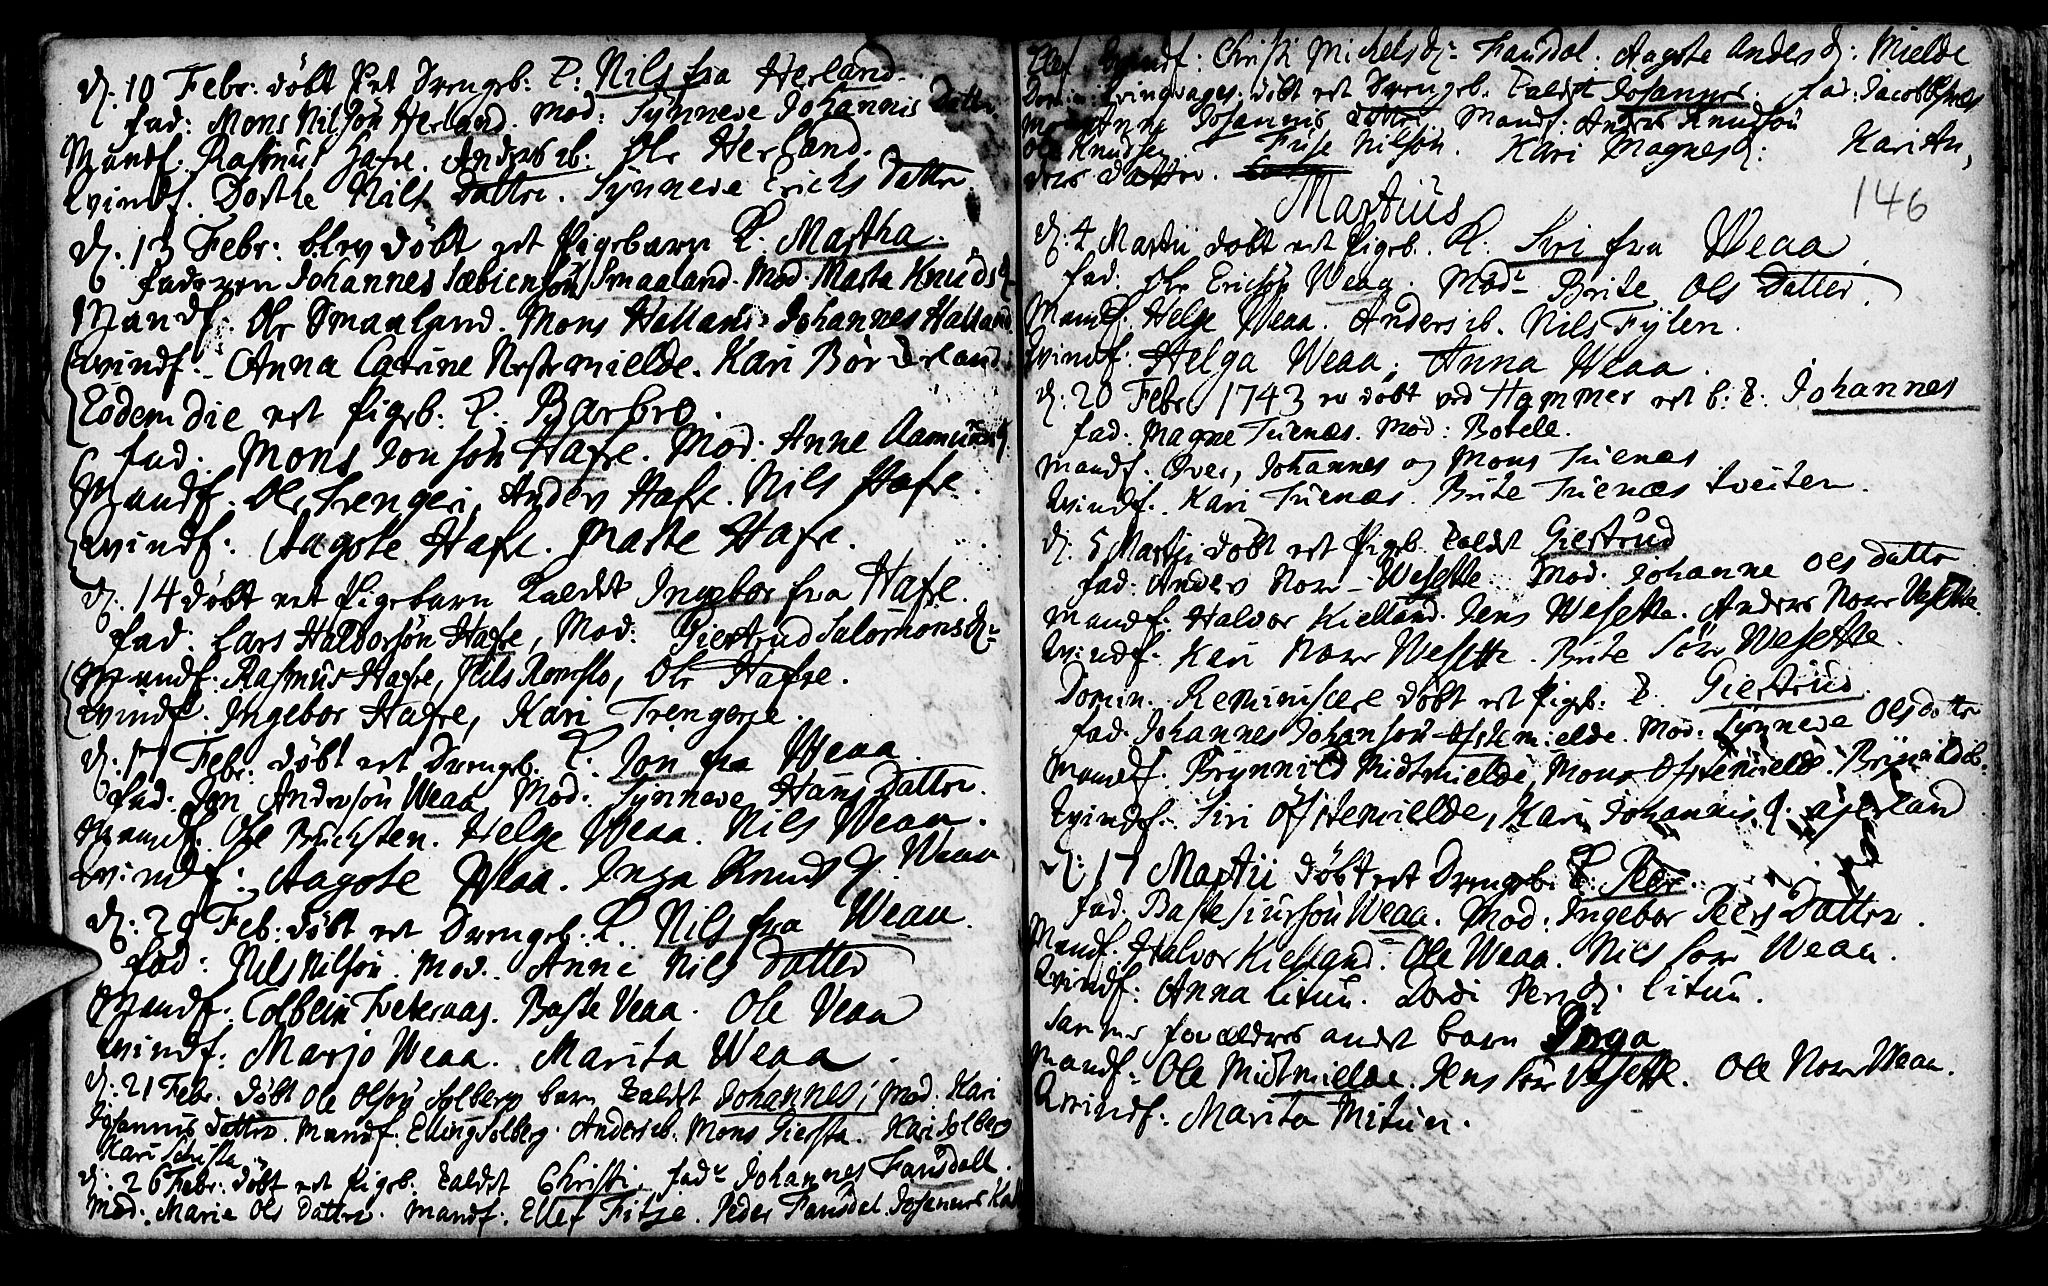 d. 10 Febr: döbt Et Drengeb: k: Nils fra Herland.
fad: Mons Nilsön Herland. Mod: Synneve Johannis Datter.
Mandf: Rasmus Hafre. Anders ib: Ole Herland.
Qvindf. Dorthe Nils Dattre. Synneve Erichs Dattre.
d. 13 Febr: blev döbt et Pigebarn k. Martha.
faderen Johannes Smaaland. Mod. Marta Knuds d
Mandf. Ole Smaaland. Mons Halland Johannes Halland
Qvindf:- Anna Catrine Nestemielde. Kari Börkeland.
Eodem die et Pigeb: k. Barbro.
fad. Mons Jonsön Hafre. Mod. Anne Aamunds d
Mandf. Ole Trengeri, Anders Hafre. Nils Hafre.
Qvindf: Aagote Hafre. Marte Hafre.
d. 14 döbt et Pigebarn kaldet Ingebor fra Hafre.
fad: Lars Haldorsön Hafre, Mod: Giertrud Salomons dr
Mandf: Rasmus Hafre, Nils Romslo, Ole Hafre.
Qvindf. Ingebor Hafre, Kari Trengerje.
d. 17 Febr: döbt et Drengeb. k: Jon fra Weaa
fad. Jon Andersön Weaa, Mod: Synneve Hans Datter.
Mandf. Ole Helge Weaa. Nils Weaa.
Qvindf:, Aagote Weaa. Inga Knuds d. Weaa
d. 20 Feb: döbt et Drengeb. k. Nils fra Weaa.
fad: Nils Nilsön. Mod. Anne Nils Datter
Mandf. Colbein Tveteraas. Baste Veaa. Ole Veaa
Qvindf: Marjo Weaa. Marita Weaa.
d. 21 Febr. döbt Ole Olsön Solberg barn kaldet Johannes; Mod. Kari
Johannis Dattre. Mandf. Elling Solberg. Anders ib. Mons Giersta. Kari Solberg
Kari
d. 26 Febr: döbt et Pigeb. kaldet Christi, fadr Johannes Fansdall.
Mod. Marie Ols Dattre. Mandf: Ellef Fitje. Peder Fansdal. Johannes
Qvindf: Christi Michels dr Fansdal. Aagote Anders d: Mielde
döbt et Drengeb. kaldet Johannes. fad: Jacob
Anna Johannis Dattre Mandf: Anders Knudsön
Ole Knudsen Nilsön. Kari Magnes d: Kari An,
ders Datter.
Martius
146
d. 4 Martii döbt et Pigeb. k. Siri fra Weaa.
fad. Ole Ericksön Weaa. Modr Brite Ols Datter.
Mandf. Helge Weaa. Anders ib. Nils Fylen.
Qvindf: Helga Weaa, Anna Weaa.
d. 20 Febr. 1743 er döbt ved Hammer et b: k. Johannes
fad: Magne Tuenæs. Mod: Botele.
Mandf. Iver, Johannes og Mons Tuenæs
Qvindf. Kari Tuenæs. Brite Tuenæs tveiten.
d. 5 Martii döbt et Pigeb. kaldet Giertrud
fad. Anders Norr-Wesette. Mod. Johanne Ols Datter
Mandf: Halvor Kielland. Jens Wesette. Anders Norr Wesette.
Qvindf. Kari Norr Wesette. Brite Sörr Wesette.
Domin. Reminiscere döbt et Pigeb: k. Giertrud
fad. Johannes Johansön Öfstemielde. Mod: Synneve Olsdatter
Mandf. Brynnild Midtmielde, Mons Öfstemielde. Brynild ib.
Qvindf. Siri Öfstemielde, Kari Johannis d.
d: 17 Martii döbt et Drengeb. k. Peer.
fad. Baste Siursön Weaa. Mod. Ingebor Peers Datter.
Mandf. Halvor Kielland. Ole Weaa. Nils Sörr Weaa.
Qvindf: Anna Litun. Dordi Pers d: Litun.
Samme forældres andet barn Inga
Mandf: Ole Midtmielde. Jens Sörr Wesette. Ole Norr Weaa.
Qvindf: Marita Mitun.